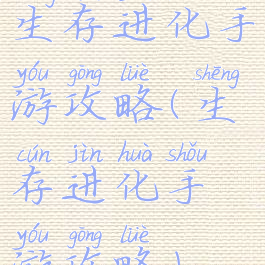 生存进化手
yóu gōng lüè shēng
游攻略(生
cún jìn huà shǒu
存进化手
yóu gōng lüè
游攻略)